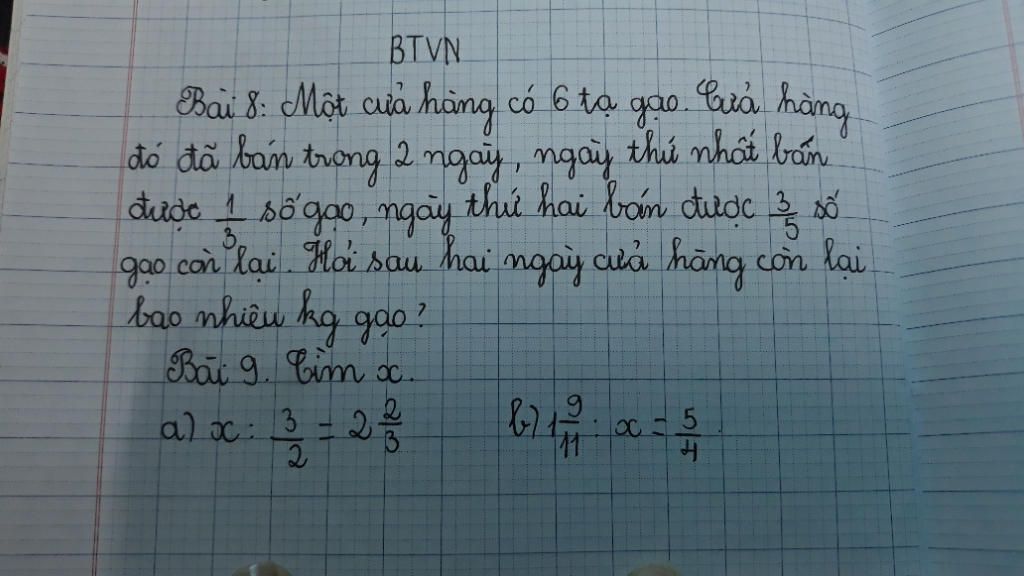 BTVN
Bài 8: Một cửa hàng có 6 tạ gạo. Cửa hàng
đó đã bán trong 2 ngày, ngày thứ nhất bán
được 1/3 số gạo, ngày thứ hai bán được 3/5 số
gạo còn lại. Hỏi sau hai ngày cửa hàng còn lại
bao nhiêu kg gạo?
Bài 9. Tìm x.
a) x : 3/2 = 2 2/3 b) 1 9/11 : x = 5/4.